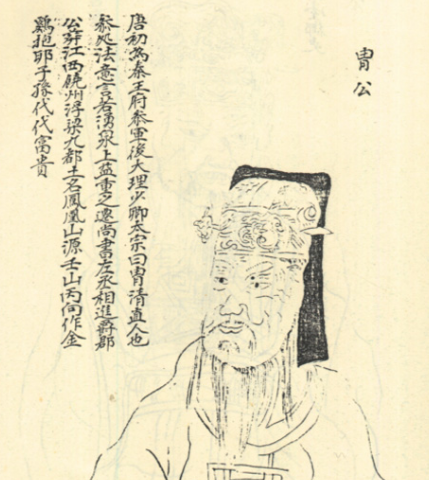 胄公
唐初為秦王府叅軍後大理少卿太宗曰胄清直人也
叅処法意言若湧泉上益重之遷尚書左丞相進爵郡
公葬江西饒州浮梁九都土名鳳凰山源壬山丙向作金
鷄抱卵子孫代代富貴